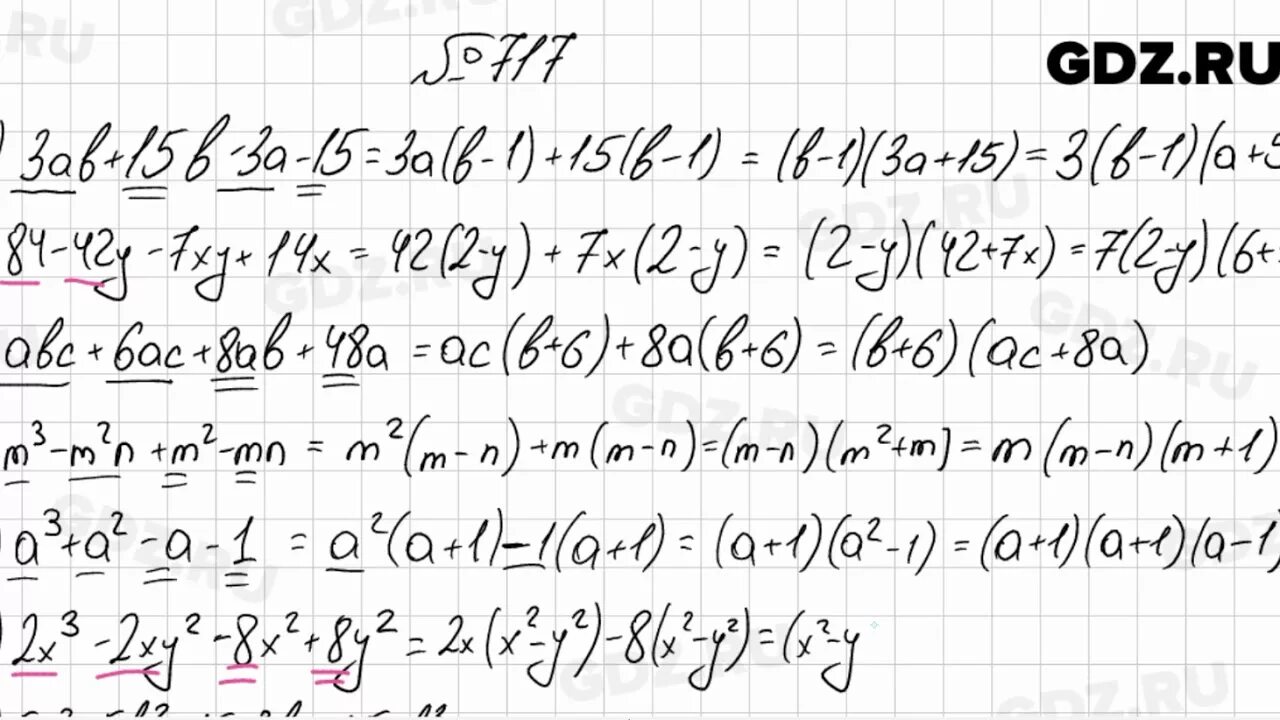 №717
GDZ.RU
) 3ab+15b-3a-15=3a(b-1)+15(b-1) = (b-1)(3a+15)=3(b-1)(a+5
84-42y-7xy+14x=42(2-y)+7x(2-y)=(2-y)(42+7x)=7(2-y)(6+
abc+6ac+8ab+48a=ac(b+6)+8a(b+6)=(b+6)(ac+8a)
m³-m²n+m²-mn=m²(m-n)+m(m-n)=(m-n)(m²+m]=m(m-n)(m+1)
) a³+a²-a-1=a²(a+1)-1(a+1)=(a+1)(a²-1)=(a+1)(a+1)(a-1)
) 2x³-2xy²-8x²+8y²=2x(x²-y²)-8(x²-y²)=(x²-y